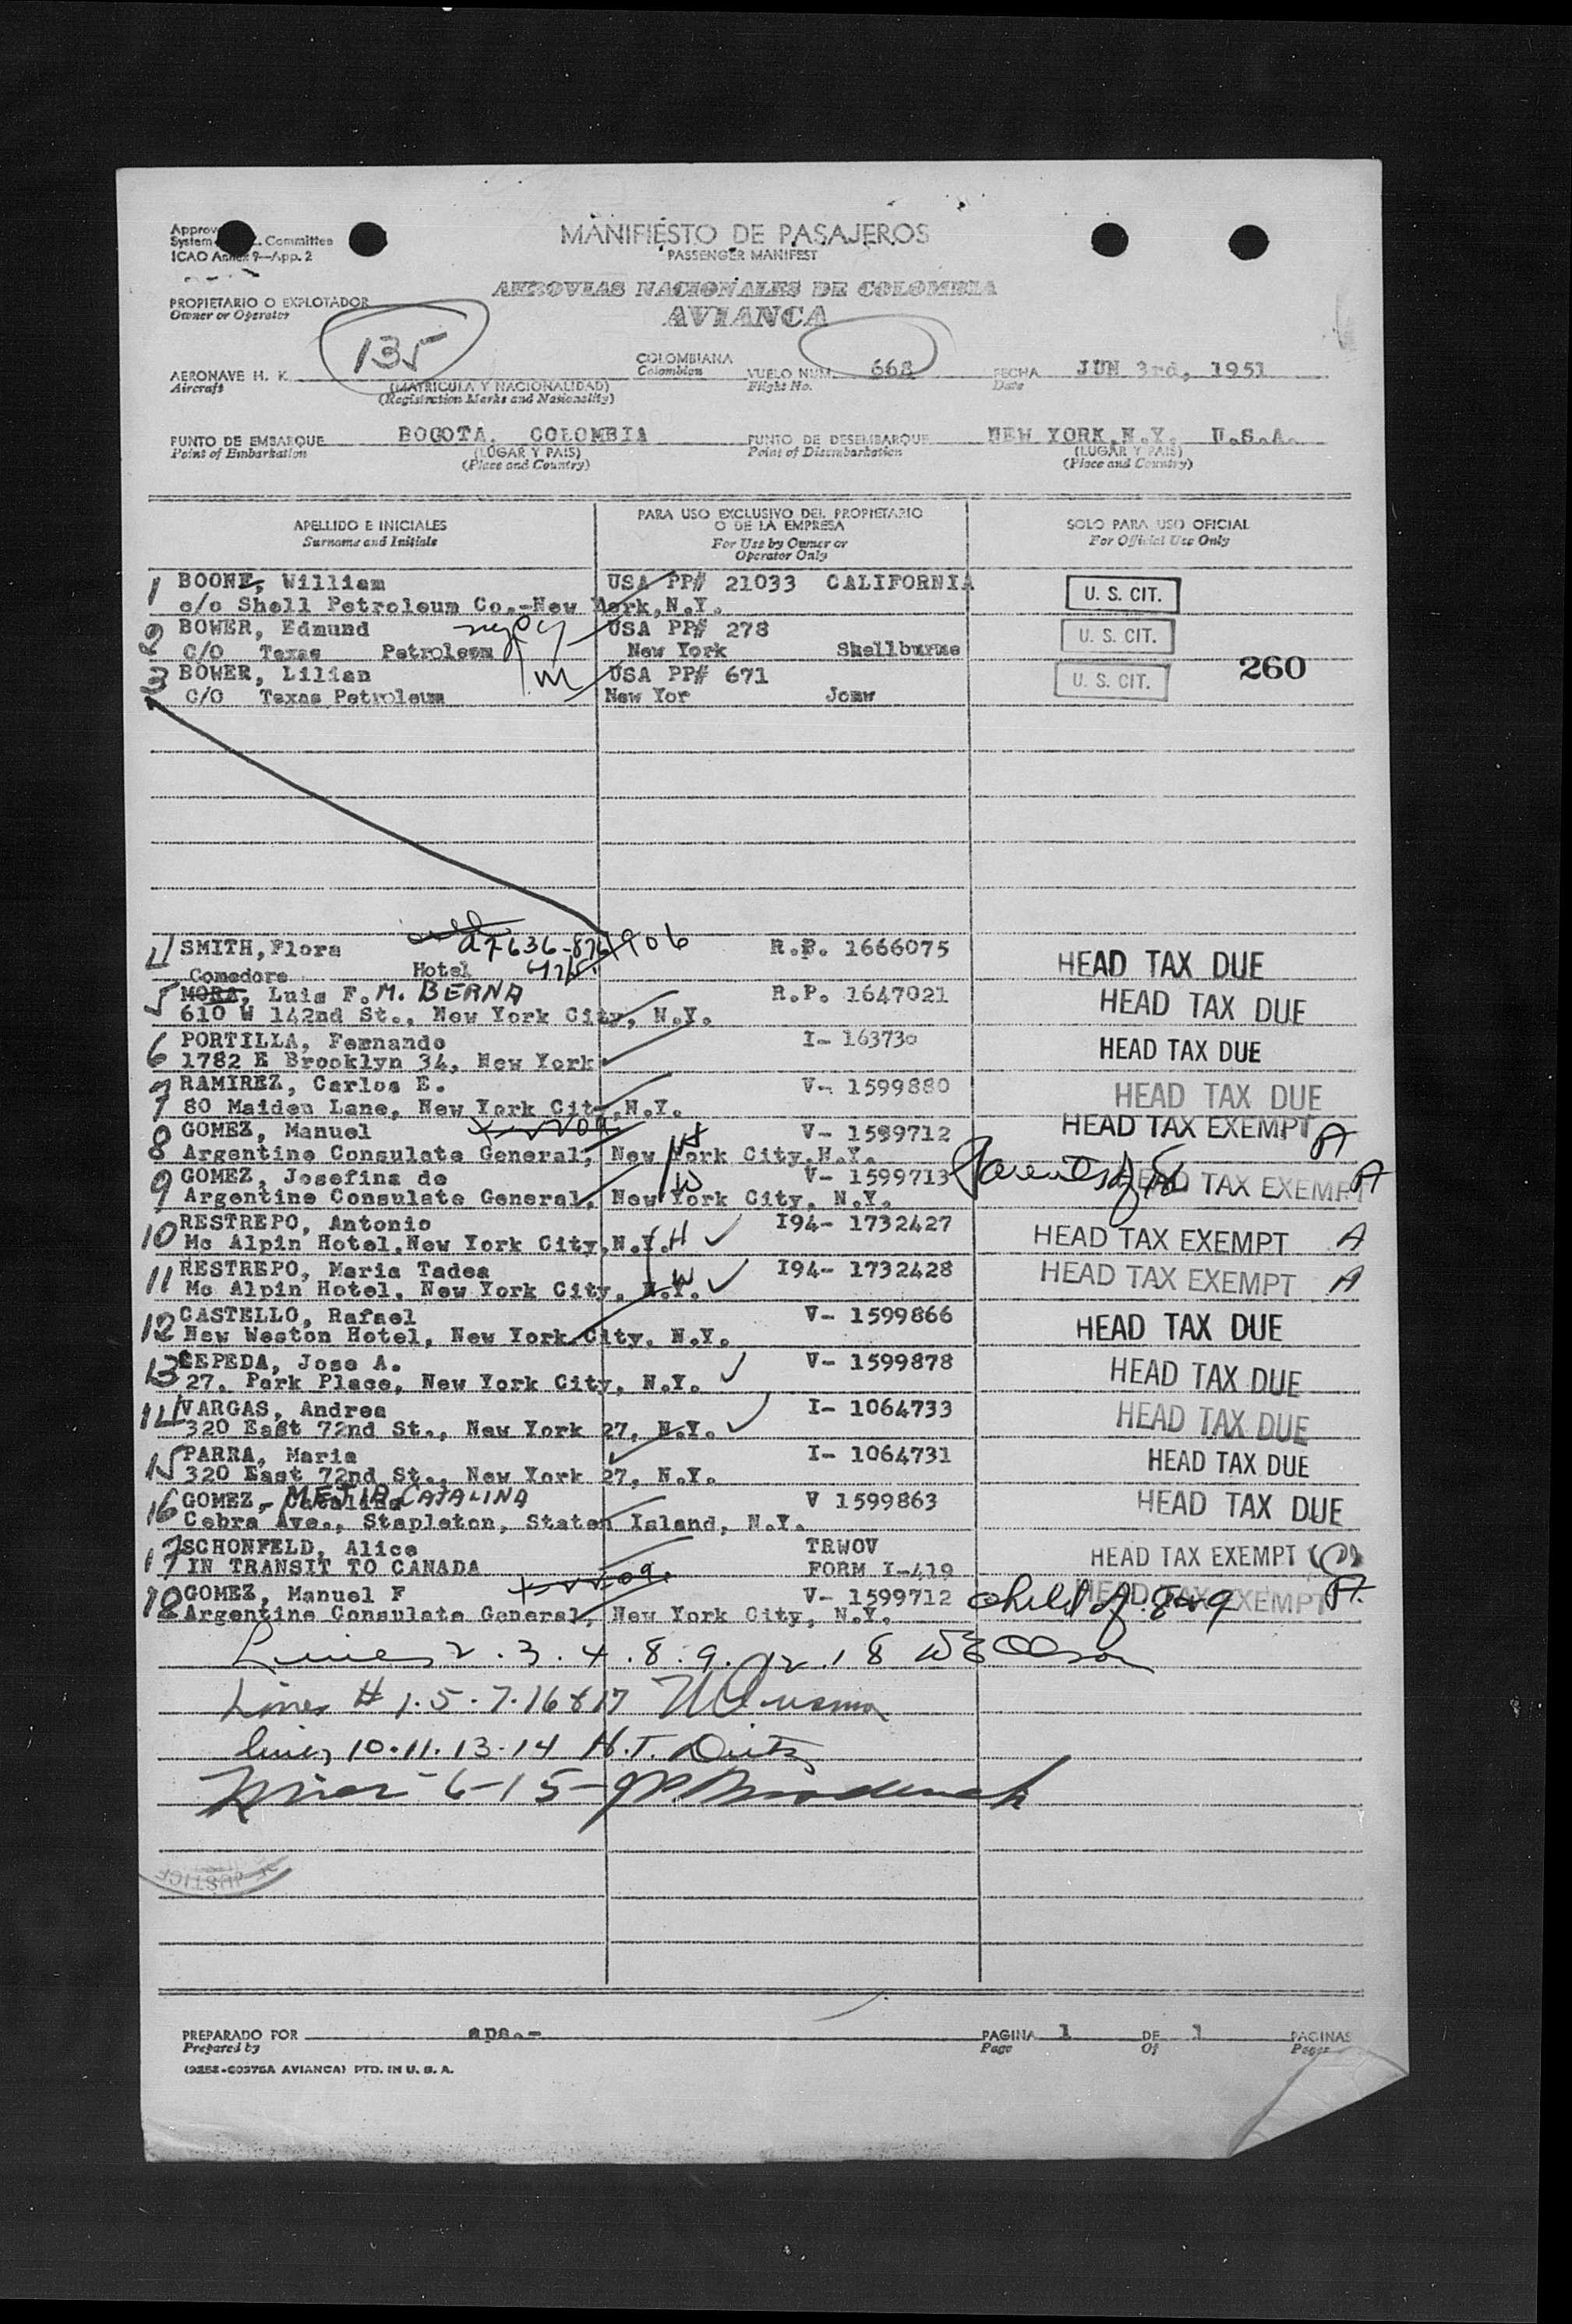 Approv
System Committee
ICAO Annex 9—App. 2
MANIFIESTO DE PASAJEROS
PASSENGER MANIFEST
AEROVIAS NACIONALES DE COLOMBIA
AVIANCA
PROPIETARIO O EXPLOTADOR
Owner or Operator
135
AERONAVE H. K.
Aircraft
(MATRICULA Y NACIONALIDAD)
(Registration Marks and Nationality)
COLOMBIANA
Colombian
VUELO NUM. 668
Flight No.
FECHA JUN 3rd, 1951
Date
PUNTO DE EMBARQUE BOGOTA, COLOMBIA
Point of Embarkation
(LUGAR Y PAIS)
(Place and Country)
PUNTO DE DESEMBARQUE NEW YORK,N.Y. U.S.A.
Point of Disembarkation
(LUGAR Y PAIS)
(Place and Country)
APELLIDO E INICIALES
Surname and Initials
PARA USO EXCLUSIVO DEL PROPIETARIO
O DE LA EMPRESA
For Use by Owner or
Operator Only
SOLO PARA USO OFICIAL
For Official Use Only
1 BOONE, William USA PP# 21033 CALIFORNIA U. S. CIT.
c/o Shell Petroleum Co.-New York,N.Y.
2 BOWER, Edmund USA PP# 278 U. S. CIT.
C/O Texas Petroleum New York Shellburne
3 BOWER, Lilian M USA PP# 671 U. S. CIT. 260
C/O Texas Petroleum New Yor Jomw
4 SMITH,Flora 906 R.P. 1666075 HEAD TAX DUE
Comedore Hotel
5 MORA, Luis F. M. BERNA R.P. 1647021 HEAD TAX DUE
610 W 142nd St., New York City, N.Y.
6 PORTILLA, Fernando I- 163730 HEAD TAX DUE
1782 E Brooklyn 34, New York
7 RAMIREZ, Carlos E. V- 1599880 HEAD TAX DUE
80 Maiden Lane, New York City,N.Y.
8 GOMEZ, Manuel V- 1599712 HEAD TAX EXEMPT A
Argentine Consulate General, New York City,N.Y. H
9 GOMEZ, Josefina de W V- 1599713 Parents of 18 HEAD TAX EXEMPT A
Argentine Consulate General, New York City, N.Y.
10 RESTREPO, Antonio I94- 1732427 HEAD TAX EXEMPT A
Mc Alpin Hotel,New York City,N.Y. H
11 RESTREPO, Maria Tadea W I94- 1732428 HEAD TAX EXEMPT A
Mc Alpin Hotel, New York City, N.Y.
12 CASTELLO, Rafael V- 1599866 HEAD TAX DUE
New Weston Hotel, New York City, N.Y.
13 CEPEDA, Jose A. V- 1599878 HEAD TAX DUE
27, Park Place, New York City, N.Y.
14 VARGAS, Andrea I- 1064733 HEAD TAX DUE
320 East 72nd St., New York 27, N.Y.
15 PARRA, Maria I- 1064731 HEAD TAX DUE
320 East 72nd St., New York 27, N.Y.
16 GOMEZ- MEJIA CATALINA V 1599863 HEAD TAX DUE
Cebra Ave., Stapleton, Staten Island, N.Y.
17 SCHONFELD, Alice TRWOV HEAD TAX EXEMPT
IN TRANSIT TO CANADA FORM I-419
18 GOMEZ, Manuel F V- 1599712 child of 8+9 HEAD TAX EXEMPT A.
Argentine Consulate General, New York City, N.Y.
Lines 2.3.4.8.9.12.18
Lines # 1.5.7.16 & 17
lines 10.11.13-14 H.T. Dietz
Lines 6-15-
JUSTICE
PREPARADO POR aps.-
Prepared by
PAGINA 1 DE 1 PAGINAS
Page Of Pages
(9252-C0375A AVIANCA) PTD. IN U. S. A.